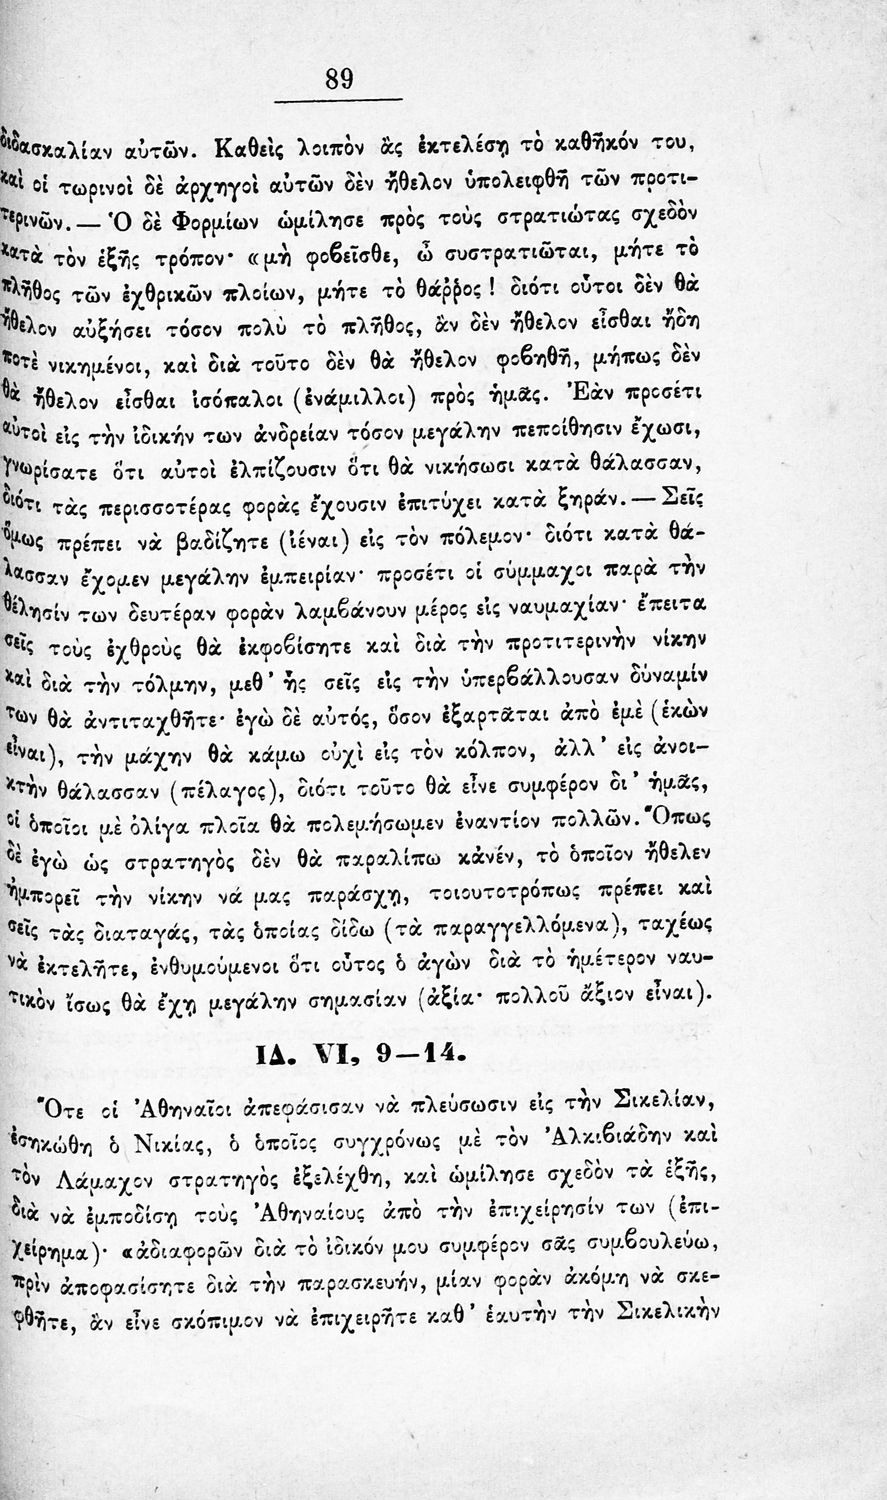 89
διδασκαλίαν αὐτῶν. Καθεὶς λοιπὸν ἂς ἐκτελέσῃ τὸ καθῆκόν του,
καὶ οἱ τωρινοὶ δὲ ἀρχηγοὶ αὐτῶν δὲν ἤθελον ὑπολειφθῆ τῶν προτι-
τερινῶν.— Ὁ δὲ Φορμίων ὡμίλησε πρὸς τοὺς στρατιώτας σχεδὸν
κατὰ τὸν ἑξῆς τρόπον· «μὴ φοβεῖσθε, ὦ συστρατιῶται, μήτε τὸ
πλῆθος τῶν ἐχθρικῶν πλοίων, μήτε τὸ θάῤῥος! διότι οὗτοι δὲν θὰ
ἤθελον αὐξήσει τόσον πολὺ τὸ πλῆθος, ἂν δὲν ἤθελον εἶσθαι ἤδη
ποτὲ νικημένοι, καὶ διὰ τοῦτο δὲν θὰ ἤθελον φοβηθῆ, μήπως δὲν
θὰ ἤθελον εἶσθαι ἰσόπαλοι (ἐνάμιλλοι) πρὸς ἡμᾶς. Ἐὰν προσέτι
αὐτοὶ εἰς τὴν ἰδικήν των ἀνδρείαν τόσον μεγάλην πεποίθησιν ἔχωσι,
γνωρίσατε ὅτι αὐτοὶ ἐλπίζουσιν ὅτι θὰ νικήσωσι κατὰ θάλασσαν,
διότι τὰς περισσοτέρας φορὰς ἔχουσιν ἐπιτύχει κατὰ ξηράν.— Σεῖς
ὅμως πρέπει νὰ βαδίζητε (ἰέναι) εἰς τὸν πόλεμον· διότι κατὰ θά-
λασσαν ἔχομεν μεγάλην ἐμπειρίαν· προσέτι οἱ σύμμαχοι παρὰ τὴν
θέλησίν των δευτέραν φορὰν λαμβάνουν μέρος εἰς ναυμαχίαν· ἔπειτα
σεῖς τοὺς ἐχθροὺς θὰ ἐκφοβίσητε καὶ διὰ τὴν προτιτερινὴν νίκην
καὶ διὰ τὴν τόλμην, μεθ' ἧς σεῖς εἰς τὴν ὑπερβάλλουσαν δύναμίν
των θὰ ἀντιταχθῆτε· ἐγὼ δὲ αὐτός, ὅσον ἐξαρτᾶται ἀπὸ ἐμὲ (ἑκὼν
εἶναι), τὴν μάχην θὰ κάμω οὐχὶ εἰς τὸν κόλπον, ἀλλ' εἰς ἀνοι-
κτὴν θάλασσαν (πέλαγος), διότι τοῦτο θὰ εἶνε συμφέρον δι' ἡμᾶς,
οἱ ὁποῖοι μὲ ὀλίγα πλοῖα θὰ πολεμήσωμεν ἐναντίον πολλῶν. Ὅπως
δὲ ἐγὼ ὡς στρατηγὸς δὲν θὰ παραλίπω κἀνέν, τὸ ὁποῖον ἤθελεν
ἡμπορεῖ τὴν νίκην νά μας παράσχῃ, τοιουτοτρόπως πρέπει καὶ
σεῖς τὰς διαταγάς, τὰς ὁποίας δίδω (τὰ παραγγελλόμενα), ταχέως
νὰ ἐκτελῆτε, ἐνθυμούμενοι ὅτι οὗτος ὁ ἀγὼν διὰ τὸ ἡμέτερον ναυ-
τικὸν ἴσως θὰ ἔχῃ μεγάλην σημασίαν (ἀξία· πολλοῦ ἄξιον εἶναι).
ΙΔ. VI, 9—14.
Ὅτε οἱ Ἀθηναῖοι ἀπεφάσισαν νὰ πλεύσωσιν εἰς τὴν Σικελίαν,
ἐσηκώθη ὁ Νικίας, ὁ ὁποῖος συγχρόνως μὲ τὸν Ἀλκιβιάδην καὶ
τὸν Λάμαχον στρατηγὸς ἐξελέχθη, καὶ ὡμίλησε σχεδὸν τὰ ἑξῆς,
διὰ νὰ ἐμποδίσῃ τοὺς Ἀθηναίους ἀπὸ τὴν ἐπιχείρησίν των (ἐπι-
χείρημα)· «ἀδιαφορῶν διὰ τὸ ἰδικόν μου συμφέρον σᾶς συμβουλεύω,
πρὶν ἀποφασίσητε διὰ τὴν παρασκευήν, μίαν φορὰν ἀκόμη νὰ σκε-
φθῆτε, ἂν εἶνε σκόπιμον νὰ ἐπιχειρῆτε καθ' ἑαυτὴν τὴν Σικελικὴν